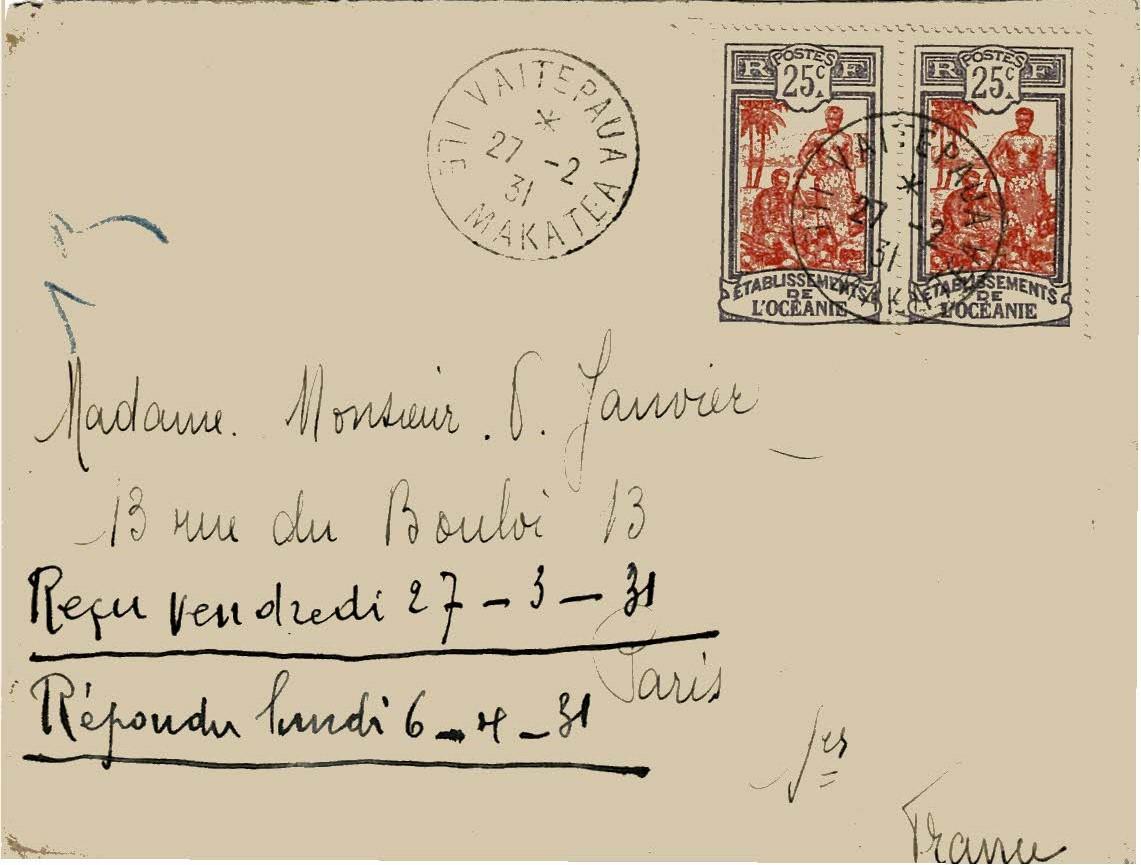 VAITEPAUA
27 -2
31
ILE MAKATEA
POSTES
R F
25c
ÉTABLISSEMENTS
DE
L'OCÉANIE
POSTES
R F
25c
ÉTABLISSEMENTS
DE
L'OCÉANIE
VAITEPAUA
27 -2
31
ILE MAKATEA
Madame. Monsieur. P. Janvier
13 rue du Bouloi 13
Reçu vendredi 27 - 3 - 31
Paris
Répondu lundi 6 - 4 - 31
1er
France